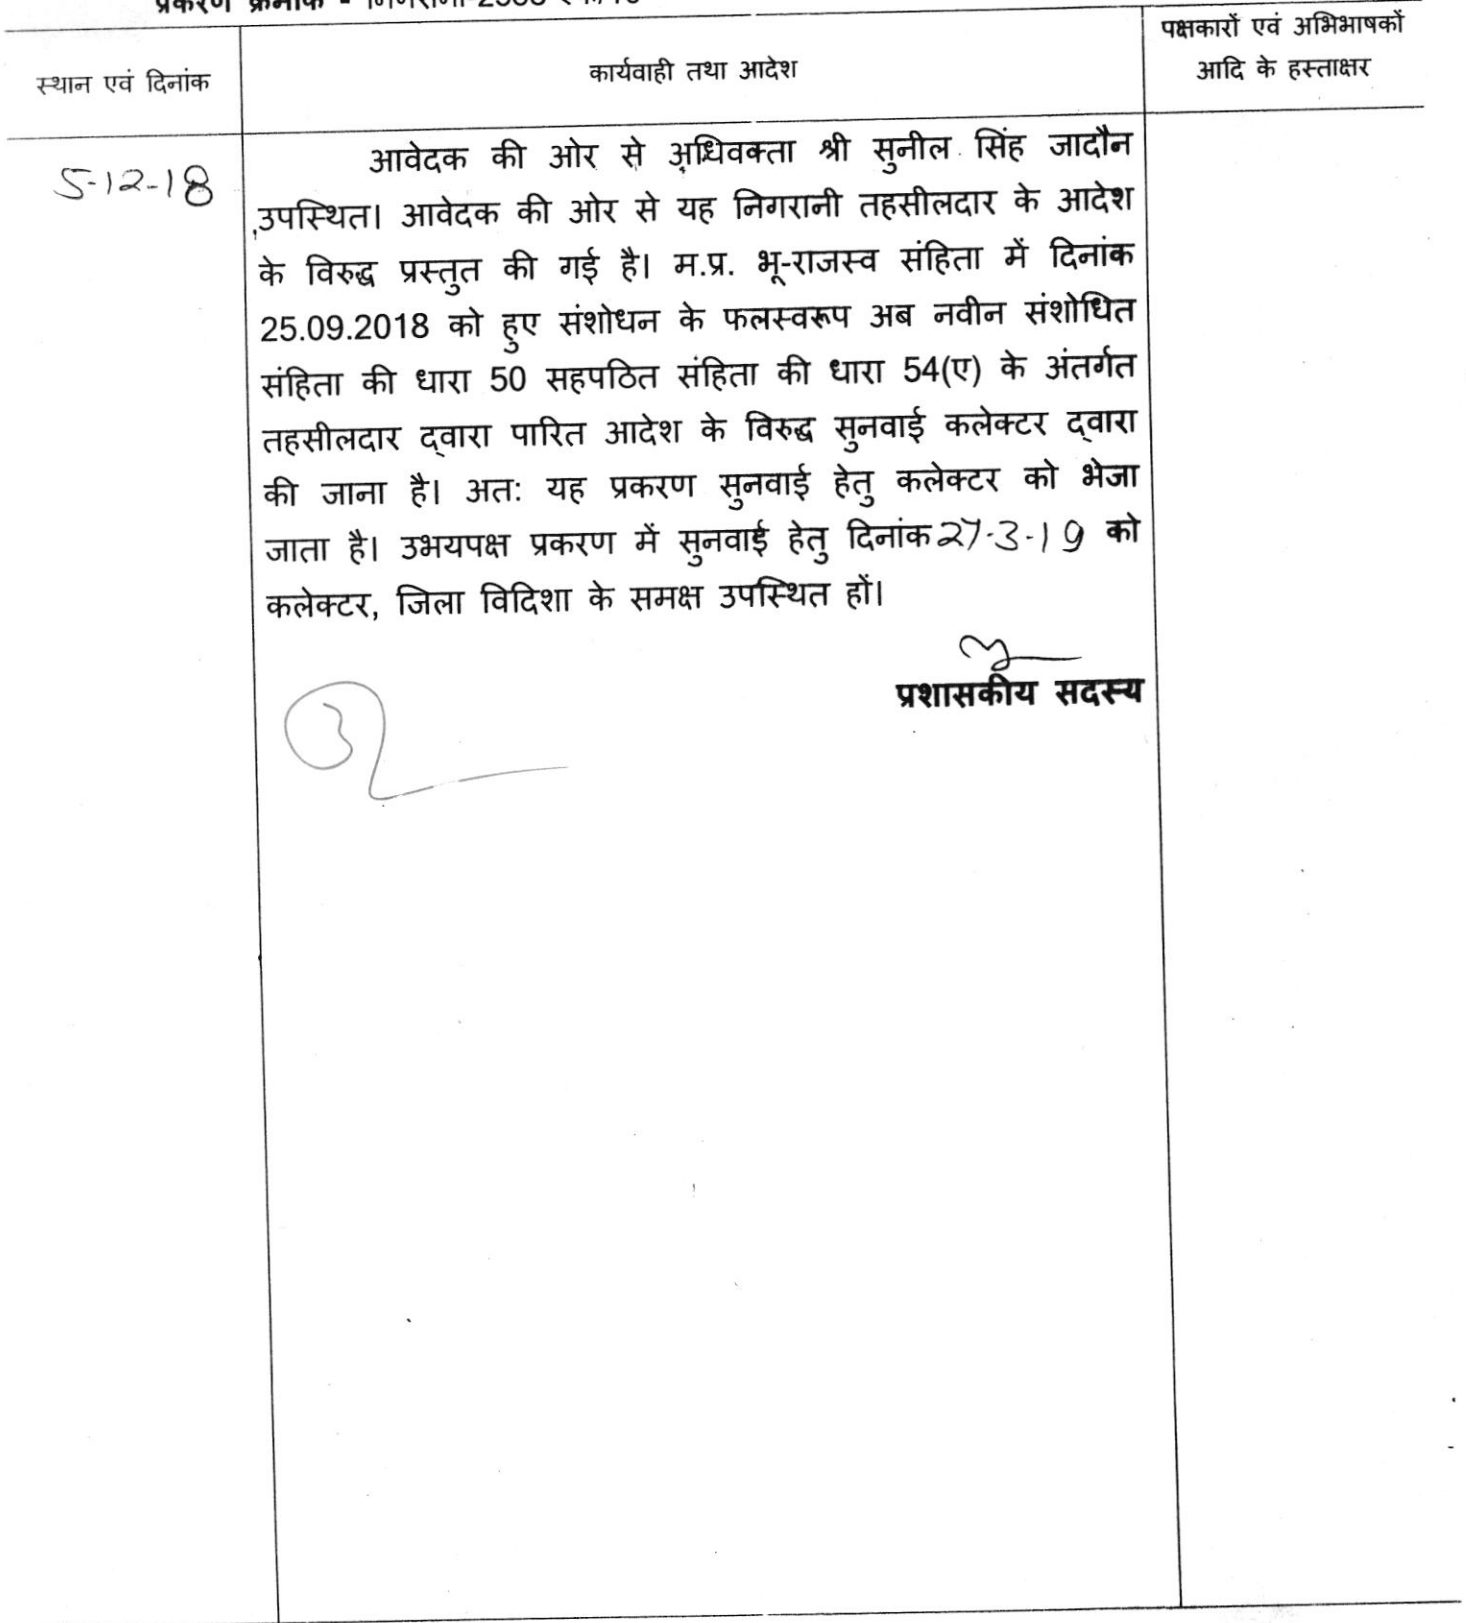 प्रकरण क्रमांक -
पक्षकारों एवं अभिभाषकों
स्थान एवं दिनांक
कार्यवाही तथा आदेश
आदि के हस्ताक्षर
5-12-18
आवेदक की ओर से अधिवक्ता श्री सुनील सिंह जादौन
उपस्थित। आवेदक की ओर से यह निगरानी तहसीलदार के आदेश
के विरुद्ध प्रस्तुत की गई है। म.प्र. भू-राजस्व संहिता में दिनांक
25.09.2018 को हुए संशोधन के फलस्वरूप अब नवीन संशोधित
संहिता की धारा 50 सहपठित संहिता की धारा 54(ए) के अंतर्गत
तहसीलदार द्वारा पारित आदेश के विरुद्ध सुनवाई कलेक्टर द्वारा
की जाना है। अतः यह प्रकरण सुनवाई हेतु कलेक्टर को भेजा
जाता है। उभयपक्ष प्रकरण में सुनवाई हेतु दिनांक 27-3-19 को
कलेक्टर, जिला विदिशा के समक्ष उपस्थित हों।
प्रशासकीय सदस्य